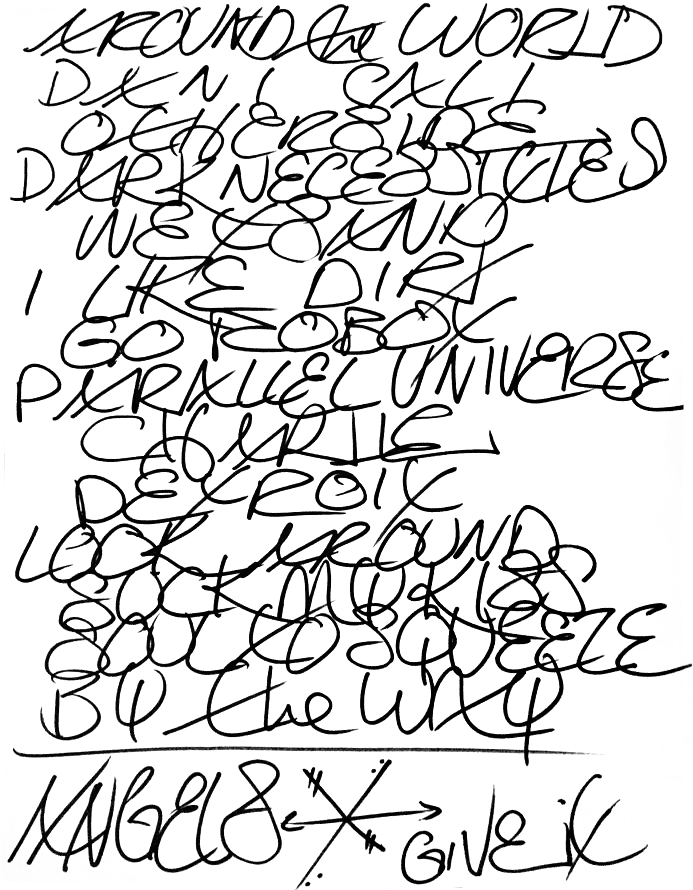 AROUND the WORLD
DANI CALI
OTHERSIDE
DARK NECESSITIES
WET SAND
I LIKE DIRT
GO ROBOT
PARALLEL UNIVERSE
CHARLIE
DETROIT
LOOK AROUND
SUCK MY KISS
SOUL TO SQUEEZE
BY the WAY
ANGELS GIVE iT